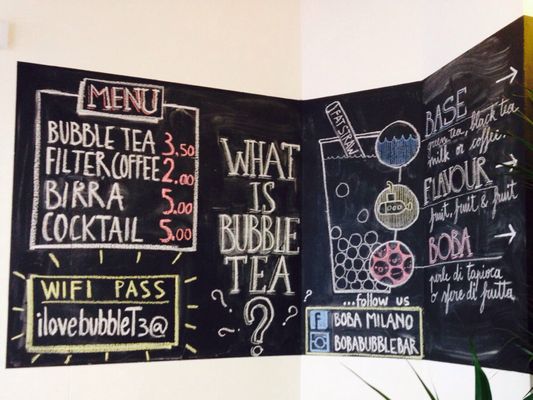 MENU
BUBBLE TEA 3.50
FILTER COFFEE 2.00
BIRRA 5.00
COCKTAIL 5.00
WIFI PASS
ilovebubbleT3@
WHAT
IS
BUBBLE
TEA
?
FAT STRAW
BASE
green tea, black tea
milk or coffee.
FLAVOUR
fruit, fruit & fruit
BOBA
perle di tapioca
o sfere di frutta
...follow us
f BOBA MILANO
BOBABUBBLEBAR